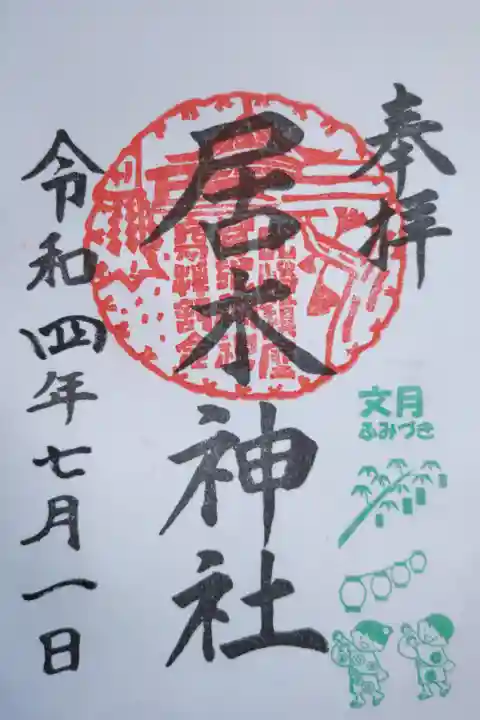 奉拝
文月
ふみづき
居木神社
令和四年七月一日